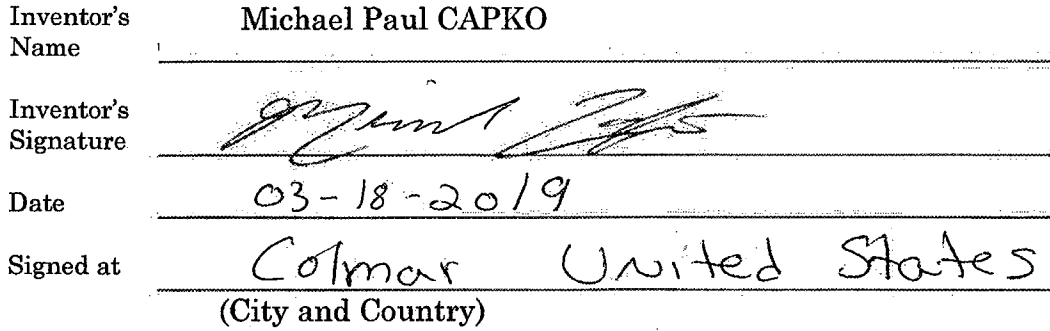 Inventor's Name Michael Paul CAPKO
Inventor's Signature
Date 03-18-2019
Signed at Colmar United States
(City and Country)